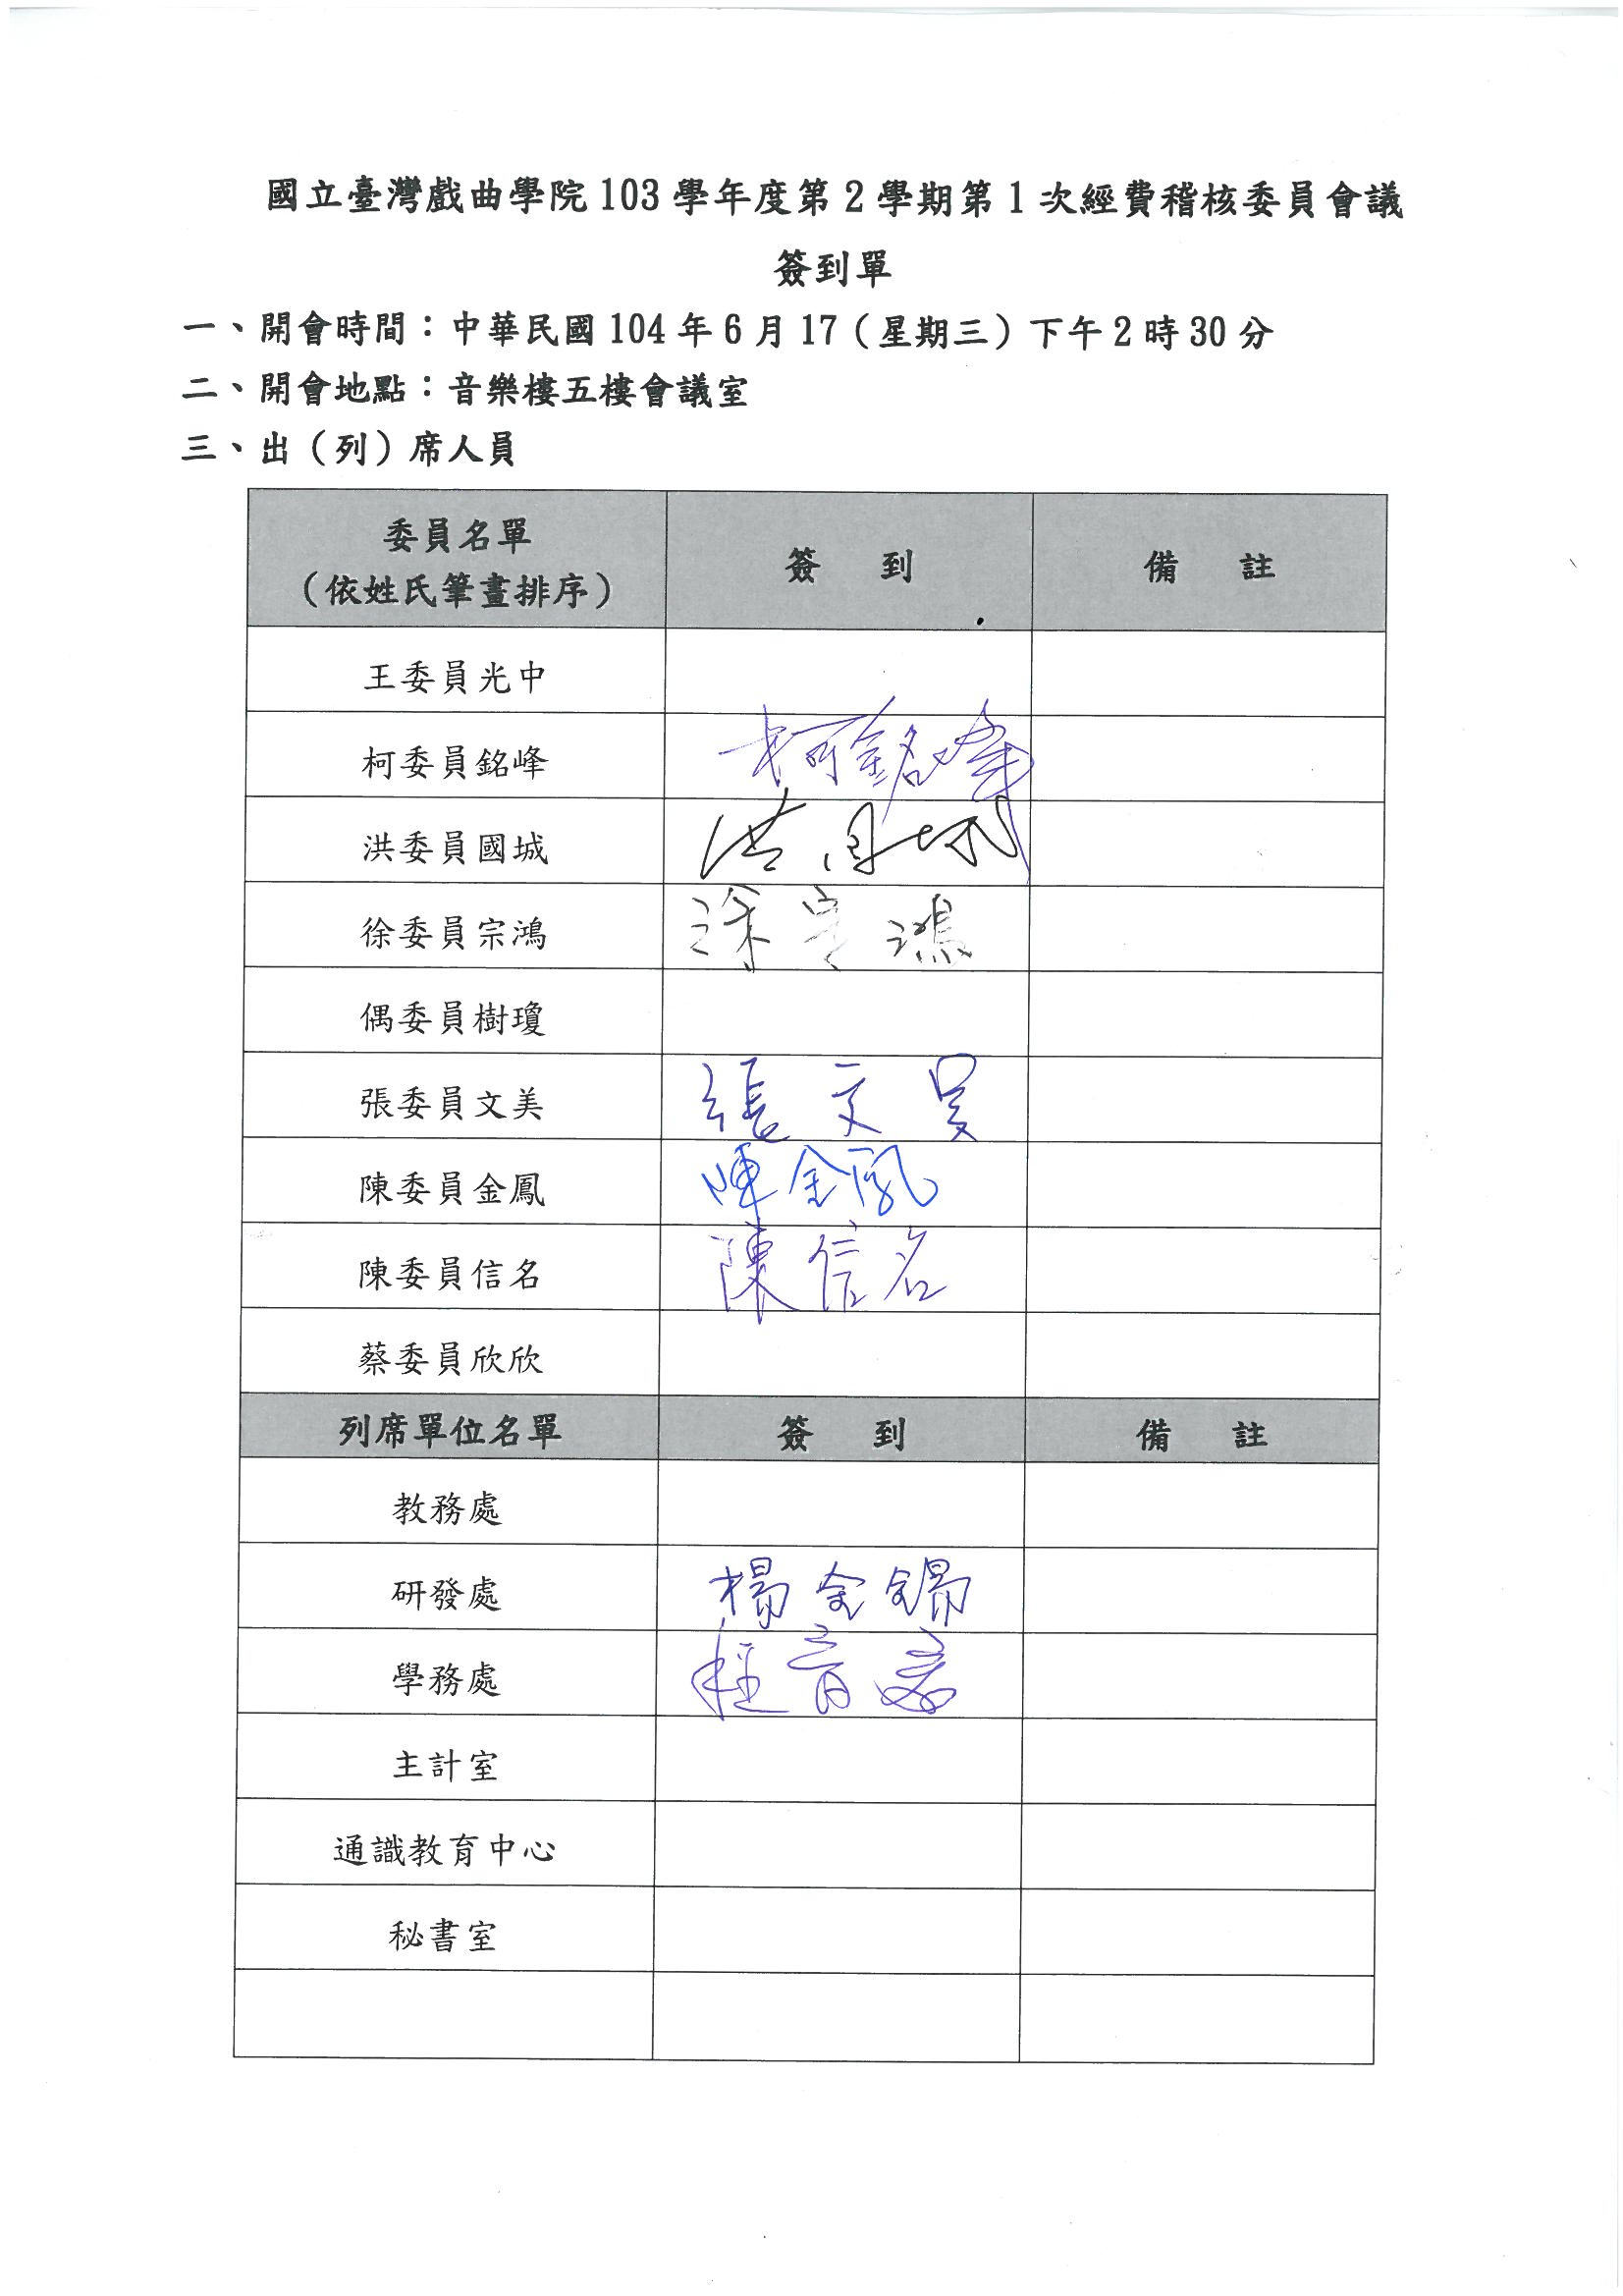 國立臺灣戲曲學院 103 學年度第 2 學期第 1 次經費稽核委員會議
簽到單
一、開會時間：中華民國 104 年 6 月 17（星期三）下午 2 時 30 分
二、開會地點：音樂樓五樓會議室
三、出（列）席人員
委員名單
（依姓氏筆畫排序） 簽 到 備 註
王委員光中
柯委員銘峰 柯銘峰
洪委員國城 洪国城
徐委員宗鴻 徐宗鴻
偶委員樹瓊
張委員文美 張文美
陳委員金鳳 陳金鳳
陳委員信名 陳信名
蔡委員欣欣
列席單位名單 簽 到 備 註
教務處
研發處 楊金錫
學務處 程育君
主計室
通識教育中心
秘書室